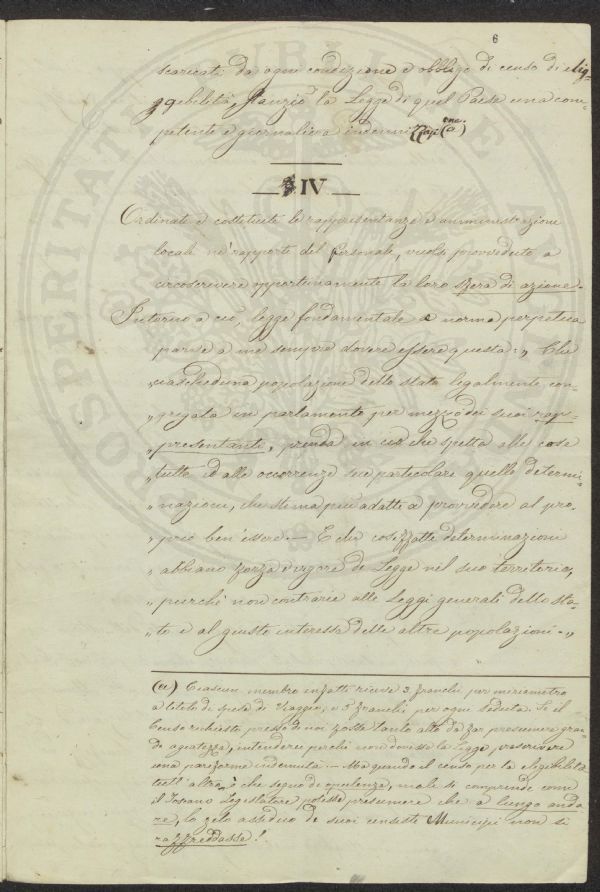 6
scaricati da ogni condizione e obbligo di censo di elig-
gibilità, sanziò la Legge di quel Paese una com-
petente e giornaliera indennizzazione (a)
IV
Ordinate e costituite le rappresentanze e amministrazione
locali ne' rapporti del Personale, vuolsi provveduto a
circoscrivere opportunamente la loro sfera di azione.
Intorno a ciò, legge fondamentale e norma perpetua
parve a me sempre dovere essere questa: „ Che
„ ciascheduna popolazione dello stato legalmente con-
„ gregata in parlamento per mezzo dei suoi rap-
„ presentanti, prenda in ciò che spetta alle cose
„ tutte ed alle occorrenze sue particolari quelle determi-
„ nazioni, che stima più adatte a provvedere al pro-
„ prio ben'essere. — E che cosiffatte determinazioni
„ abbiano forza e vigore di Legge nel suo territorio,
„ purché non contrarie alle Leggi generali dello sta-
„ to e al giusto interesse delle altre popolazioni. „
(a) Ciascun membro infatti riceve 3 franchi per miriametro
a titolo di spese di Viaggio, e 5 franchi per ogni seduta. Se il
Censo richiesto presso di noi fosse tanto alto da far presumere gran-
de agiatezza, intenderei perché non dovesse la Legge prescrivere
una pareiforme indennità. — Ma quando il censo per la eligibilità
tutt'altro è che segno di opulenza, male si comprende come
il Toscano Legislatore potesse presumere che a lungo anda-
re, lo zelo assiduo de' suoi censiti Municipi non si
raffreddasse!
PROSPERITATI
PUBLICAE